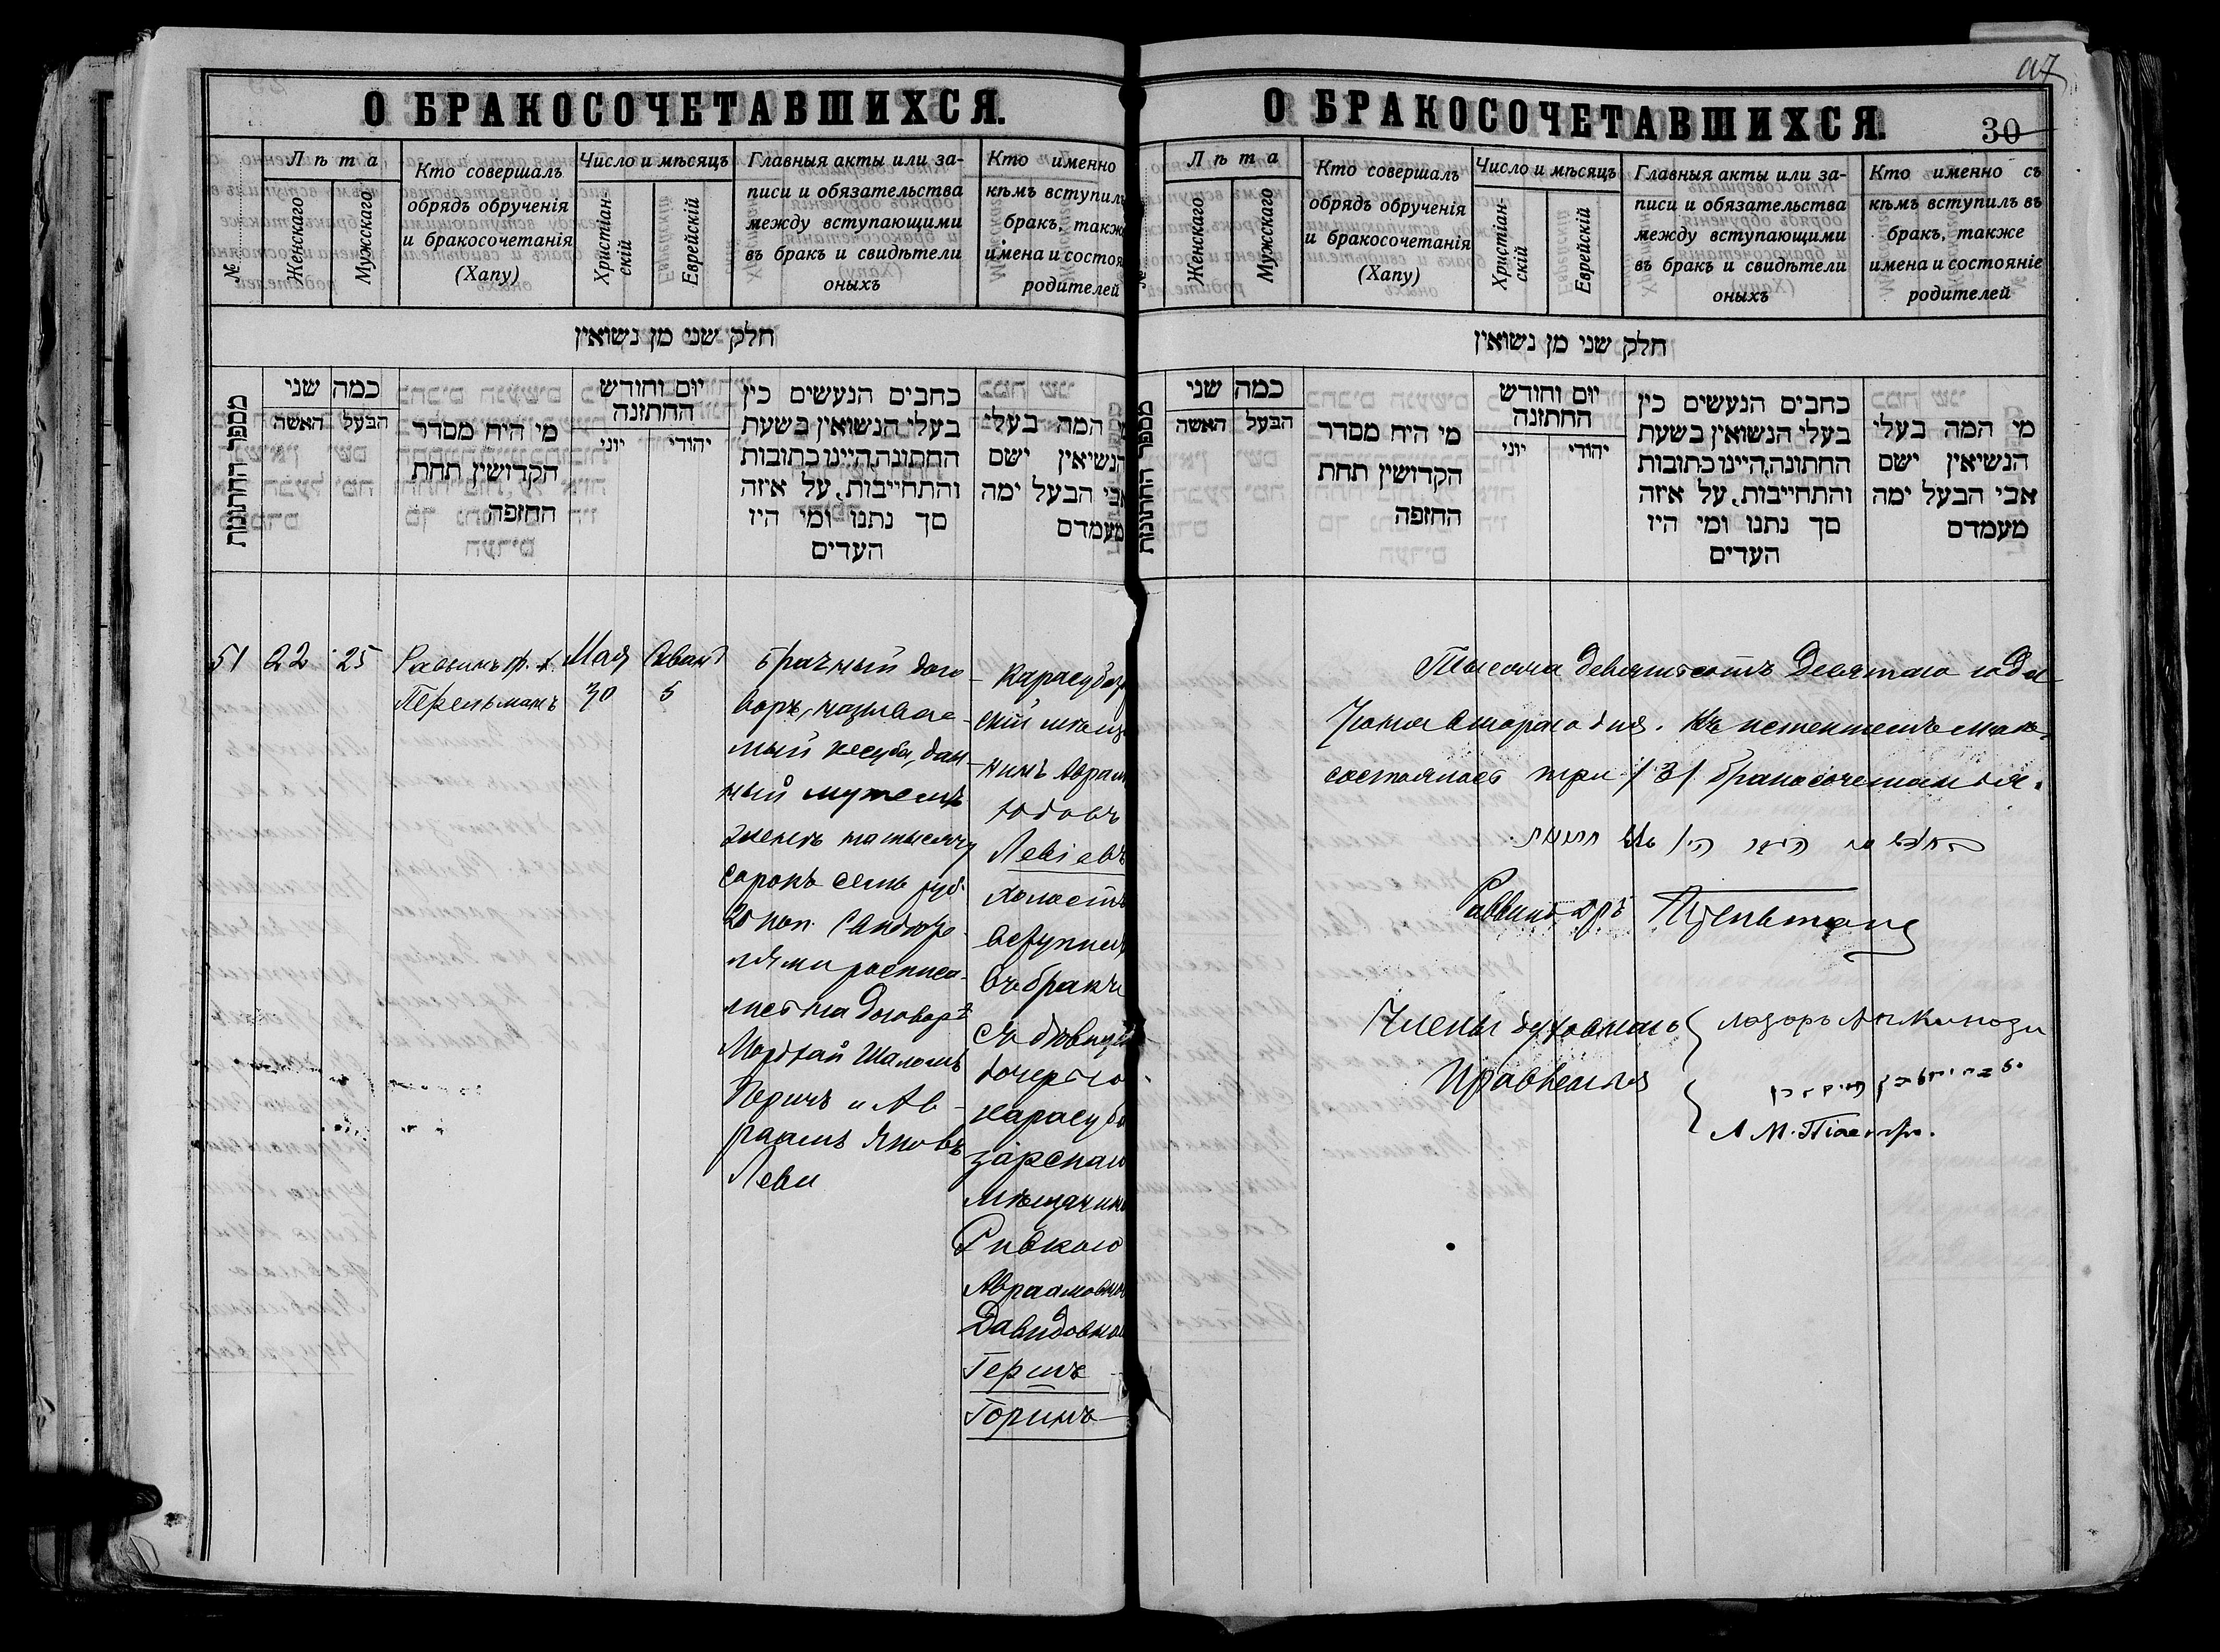 О БРАКОСОЧЕТАВШИХСЯ.
№
Лѣта
Женскаго
Мужскаго
Кто совершалъ
обрядъ обрученія
и бракосочетанія
(Хапу)
Число и мѣсяцъ
Христіан-
скій
Еврейскій
Главныя акты или за-
писи и обязательства
между вступающими
въ бракъ и свидѣтели
оныхъ
Кто именно
кѣмъ вступилъ
бракъ, также
имена и состоя
родителей
חלק שני מן נשואין
מספר החתונות
כמה שני
הבעל האשה
מי היח מסדר
הקדושין תחת
החופה
יום וחודש
החתונה
יהודי יוני
כתבים הנעשים כין
בעלי הנשואין בשעת
החתונה,היינו כתובות
והתחייבות, על איזה
סך נתנו ומי היו
העדים
המה בעלי
הנשיאין ישם
אבי הבעל ימה
מעמדם
51 22 25
Раввинъ
Перельманъ
Мая
30
Сивана
5
Брачный дого-
воръ, называе-
мый кесуба, дан-
ный мужемъ
женѣ на тысячу
сорокъ семь руб.
20 коп. Свидѣте-
лями росписа-
лись на договорѣ
Мордхай Шаломъ
Перичъ и Ав-
раамъ Яковъ
Леви
Карасубаз
скій мѣща
нинъ Авраам
Юдовъ
Левіевъ
холостъ
вступилъ
въ бракъ
съ дѣвице
дочерью
карасуба
зарскаго
мѣщанин
Ривкою
Авраамовно
Давидовно
Геринъ
Горинъ
О БРАКОСОЧЕТАВШИХСЯ.
30
№
Лѣта
Женскаго
Мужскаго
Кто совершалъ
обрядъ обрученія
и бракосочетанія
(Хапу)
Число и мѣсяцъ
Христіан-
скій
Еврейскій
Главныя акты или за-
писи и обязательства
между вступающими
въ бракъ и свидѣтели
оныхъ
Кто именно съ
кѣмъ вступилъ въ
бракъ, также
имена и состояніе
родителей
חלק שני מן נשואין
מספר החתונות
כמה שני
הבעל האשה
מי היח מסדר
הקדושין תחת
החופה
יום וחודש
החתונה
יהודי יוני
כתבים הנעשים כין
בעלי הנשואין בשעת
החתונה,היינו כתובות
והתחייבות, על איזה
סך נתנו ומי היו
העדים
מי המה בעלי
הנשיאין ישם
אבי הבעל ימה
מעמדם
Тысяча девятьсотъ десятаго года
Іюня втораго дня. Въ истекшемъ маѣ
состоялось три /3/ бракосочетанія.
Раввинъ др Перельманъ
Члены духовнаго
Правленія